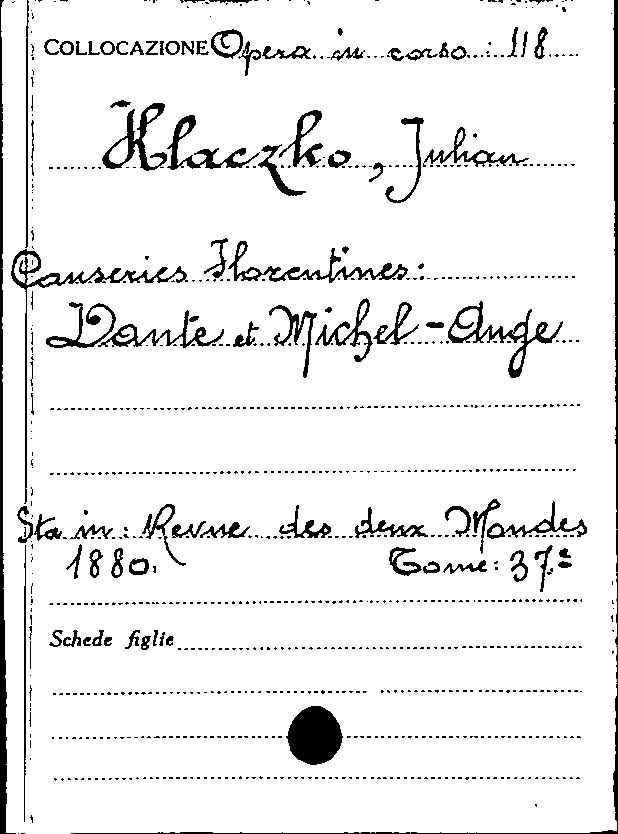 COLLOCAZIONE Opera in corso: 118
Klaczko, Julian
Causeries Florentines:
Dante et Michel-Ange
Sta in: Revue des deux Mondes
1880. Tome: 37.e
Schede figlie